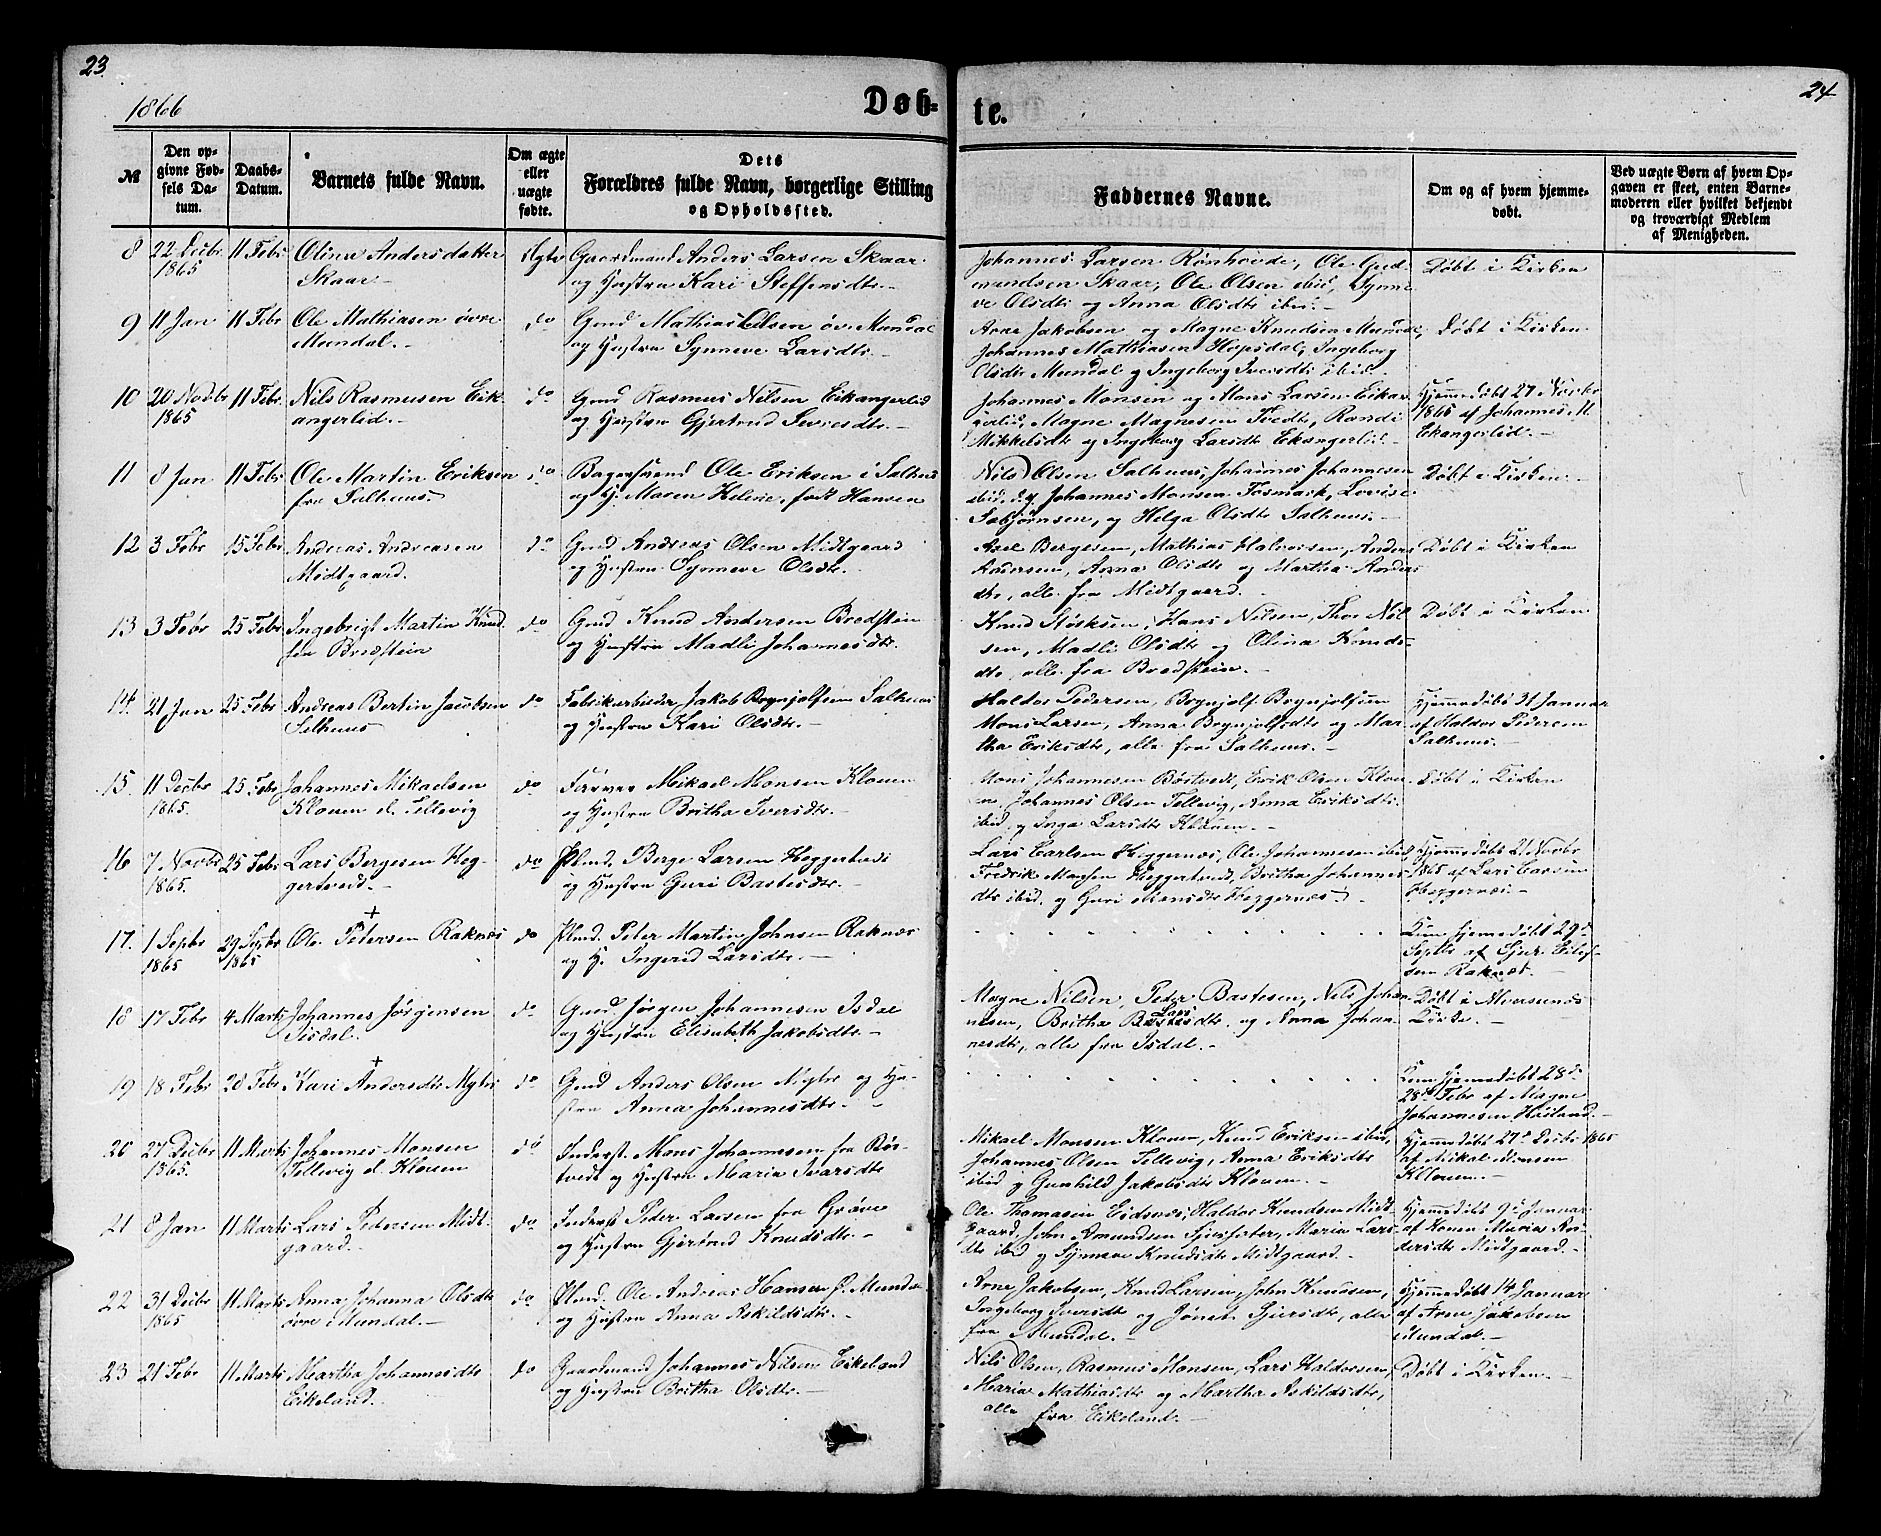 23.
24
1866
Døb-
te.
№
Den op-
givne Fød-
sels Da-
tum.
Daabs-
Datum.
Barnets fulde Navn.
Om ægte
eller
uægte
fødte.
Dets
Forældres fulde Navn, borgerlige Stilling
og Opholdssted.
Faddernes Navne.
Om og af hvem hjemme-
døbt.
Ved uægte Børn af hvem Op-
gaven er skeet, enten Barne-
moderen eller hvilket bekjendt
og troværdigt Medlem
af Menigheden.
8 22 Decbr 11 Febr Olina Andersdatter Ægte Gaardmand Anders Larsen Skaar Johannes Larsen Rönhovde, Ole Gud- Døbt i Kirken
1865 Skaar og Hustru Kari Steffensdtr. mundsen Skaar, Ole Olsen ibid, Synne-
ve Olsdtr og Anna Olsdtr ibid.
9 11 Jan 11 Febr Ole Mathiasen øvre do Gmd Mathias Olsen øv. Mundal Arne Jakobsen og Magne Knudsen Mundal, Døbt i Kirken
Mundal.- og Hustru Synneve Larsdtr.- Johannes Mathiasen Hopsdal, Ingeborg
Olsdtr Mundal og Ingeborg Iversdtr ibid.
10 20 Novbr 11 Febr Nils Rasmusen Eik- do Gmd Rasmus Nilsen Eikangerlid Johannes Monsen og Mons Larsen Eikan- Hjemmedøbt 27 Novbr
1865 angerlid.- og Hustru Gjertrud Iversdtr.- gerlid, Magne Magnesen Tvedt, Randi 1865 af Johannes M.
Mikkelsdtr og Ingeborg Larsdtr Ekangerlid.- Ekangerlid.-
11 8 Jan 11 Febr Ole Martin Eriksen do Bagersvend Ole Eriksen i Salhus Nils Olsen Salhuus, Johannes Johannesen Døbt i Kirken.-
fra Salhuus. og H. Maren Helene, født Hansen ibid, Johannes Monsen Fosmark, Lovise
Esbjörnsen, og Helga Olsdtr Salhuus.-
12 3 Febr 15 Febr Andreas Andreasen do Gmd Andreas Olsen Midtgaard Axel Bergesen, Mathias Halvorsen, Anders Døbt i Kirken
Midtgaard. og Hustru Synneve Olsdtr.- Andersen, Anna Olsdtr og Martha Anders
dtr, alle fra Midtgaard.-
13 3 Febr 25 Febr Ingebrigt Martin Knud- do Gmd Knud Andersen Bredstein Knud Hans Nilsen, Thor Nil- Døbt i Kirken
sen Bredstein og Hustru Madli Johannesdtr. sen, Madli Olsdtr og Olina Knuds-
dtr, alle fra Bredstein.-
14. 21 Jan 25 Febr Andreas Bertin Jacobsen do Fabrikarbeider Jakob Brynjolfsen Salhuus Haldor Pedersen, Brynjolf Brynjolfsen Hjemmedøbt 31 Januar
Salhuus og Hustru Kari Olsdtr.- Mons Larsen, Anna Brynjolfsdtr og Mar- af Haldor Pedersen
tha Eriksdtr, alle fra Salhuus.- Salhuus.-
15. 11 Decbr 25 Febr Johannes Mikaelsen do Farver Mikael Monsen Klouen Mons Johannesen Börtvedt, Erik Olsen Klou- Døbt i Kirken
1865. Klouen el. Tellevig og Hustru Britha Iversdtr.- en, Johannes Olsen Tellevig, Anna Eriksdtr
ibid, og Inga Larsdtr Klouen.-
16 7 Novbr 25 Febr Lars Bergesen Heg- do Plmd. Berge Larsen Heggertveit Lars Carlsen Heggernæs, Ole Johannesen ibid, Hjemmedøbt 21 Novbr
1865. gertveit.- og Hustru Guri Bastesdtr.- Fredrik Monsen Heggertveit, Britha Johannes- 1865 af Lars Carlsen
dtr ibid, og Guri Monsdtr Heggernæs Heggernæs.-
17. 1 Septbr 29 Septbr Ole + Petersen Raknæs do Plmd. Peter Martin Johnsen Raknæs Kun hjemmedøbt 29de
1865 1865 og H. Ingerid Larsdtr.- Septbr af Sjur Eilef-
sen Raknæs.
18 17 Febr 4 Marts Johannes Jørgensen do Gmd. Jørgen Johannesen Isdal Magne Nilsen, Peder Bastesen, Nils Johan- Døbt i Alversunds
Isdal. og Hustru Elisabeth Jakobsdtr.- nesen, Britha Larsdtr og Anna Johan- Kirke.-
nesdtr, alle fra Isdal.-
19 18 Febr 28 Febr Kari + Andersdtr Mykle do Gmd Anders Olsen Mykle og Hu- Kun hjemmedøbt 28de
stru Anna Johannesdtr.- 28de Febr af Magne
Johannesen Høiland.-
20 27 Decbr 11 Marts Johannes Monsen do Inderst. Mons Johannesen fra Bör- Mikael Monsen Klouen, Knud Eriksen ibid, Hjemmedøbt 27de Decbr 1865
1865. Tellevig el. Klouen tvedt og Hustru Maria Ivarsdtr Johannes Olsen Tellevig, Anna Eriksdtr af Mikal Monsen
ibid og Gunhild Jakobsdtr Klouen.- Klouen.-
21 8 Jan 11 Marts Lars Pedersen Midt- do Inderst Peder Larsen fra Gröve Ole Thomasen Eidsnæs, Haldor Knudsen Midt- Hjemmedøbt 9de Januar
gaard.- og Hustru Gjertrud Knudsdtr.- gaard, John Amundsen Maria Lars- af Konen Maria An-
dtr ibid og Synneve Knudsdtr Midtgaard.- dersdtr Midtgaard.-
22 31 Decbr 11 Marts Anna Johanna Olsdtr do Plmd. Ole Andreas Hansen Ø. Mundal Arne Jakobsen, Knud Larsen, John Knudsen, Hjemmedøbt 14 Januar
1865 øvre Mundal.- og Hustru Anna Askildsdtr.- Ingeborg Iversdtr og Jönet Sjursdtr, alle af Arne Jakobsen
fra Mundal.- Mundal.-
23 21 Febr 11 Marts Martha Johannesdtr do Gaardmand Johannes Nilsen Eikeland Nils Olsen, Rasmus Monsen, Lars Haldorsen, Døbt i Kirken.-
Eikeland. og Hustru Britha Olsdtr.- Maria Mathiasdtr og Martha Askildsdtr,
alle fra Eikeland.-